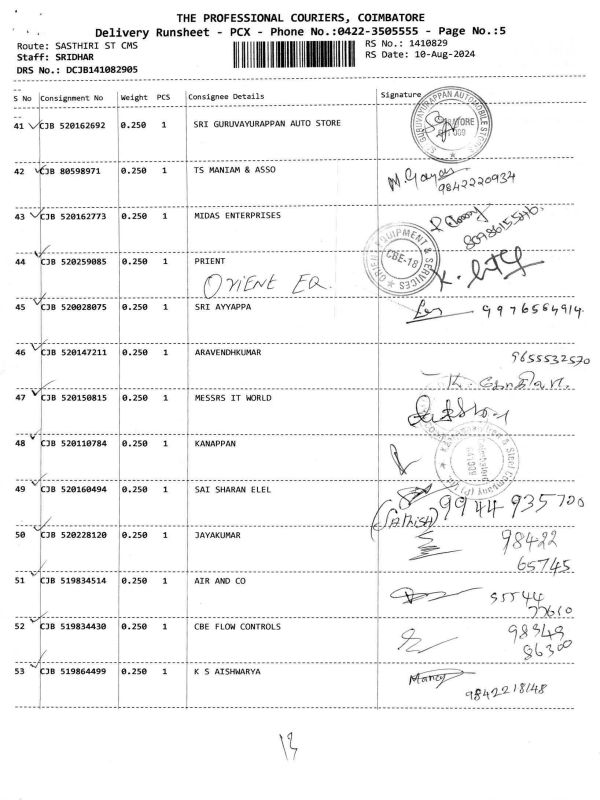 THE PROFESSIONAL COURIERS, COIMBATORE
Delivery Runsheet - PCX - Phone No.:0422-3505555 - Page No.:5
Route: SASTHIRI ST CMS
RS No.: 1410829
Staff: SRIDHAR
RS Date: 10-Aug-2024
DRS No.: DCJB141082905
S No Consignment No Weight PCS Consignee Details Signature
41 CJB 520162692 0.250 1 SRI GURUVAYURAPPAN AUTO STORE
42 CJB 80598971 0.250 1 TS MANIAM & ASSO
9842220934
43 CJB 520162773 0.250 1 MIDAS ENTERPRISES
44 CJB 520259085 0.250 1 PRIENT
ORIENT EQ.
ORIENT EQUIPMENT & SERVICES
CBE-18
45 CJB 520028075 0.250 1 SRI AYYAPPA
9976564914
46 CJB 520147211 0.250 1 ARAVENDHKUMAR
9655532570
47 CJB 520150815 0.250 1 MESSRS IT WORLD
48 CJB 520110784 0.250 1 KANAPPAN
49 CJB 520160494 0.250 1 SAI SHARAN ELEL
9944 935700
(SATHISH)
50 CJB 520228120 0.250 1 JAYAKUMAR
98422
65745
51 CJB 519834514 0.250 1 AIR AND CO
95544
77610
52 CJB 519834430 0.250 1 CBE FLOW CONTROLS
98349
86300
53 CJB 519864499 0.250 1 K S AISHWARYA
9842218148
13